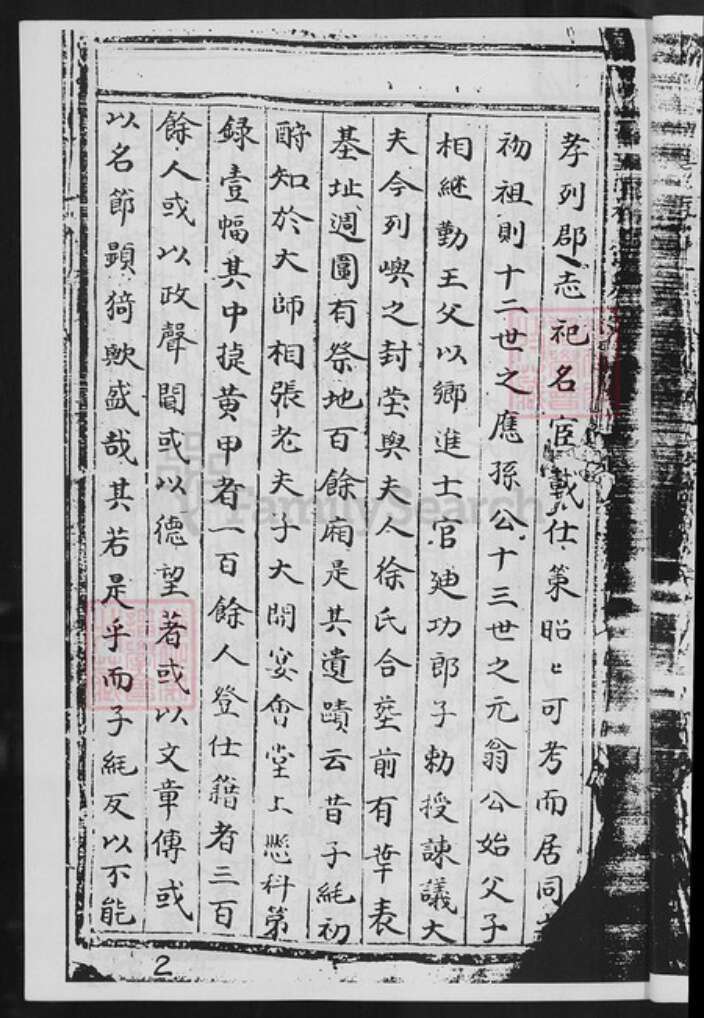 孝列郡志祀名宦載仕策昭〻可考而居同
初祖則十二世之應孫公十三世之元翁公始父子
相継勤王父以鄉進士官廸功郎子勅授諫議大
夫今列嶼之封塋與夫人徐氏合塟前有華表
基址週圍有祭地百餘廂是其遺蹟云昔子紌初
酧知於大師相張老夫子大開宴會堂上懸科第
録壹幅其中㨗黄甲者一百餘人登仕籍者三百
餘人或以政聲聞或以德望著或以文章傳或
以名節顕猗歟盛哉其若是乎而子紌反以不能
2
FamilySearch